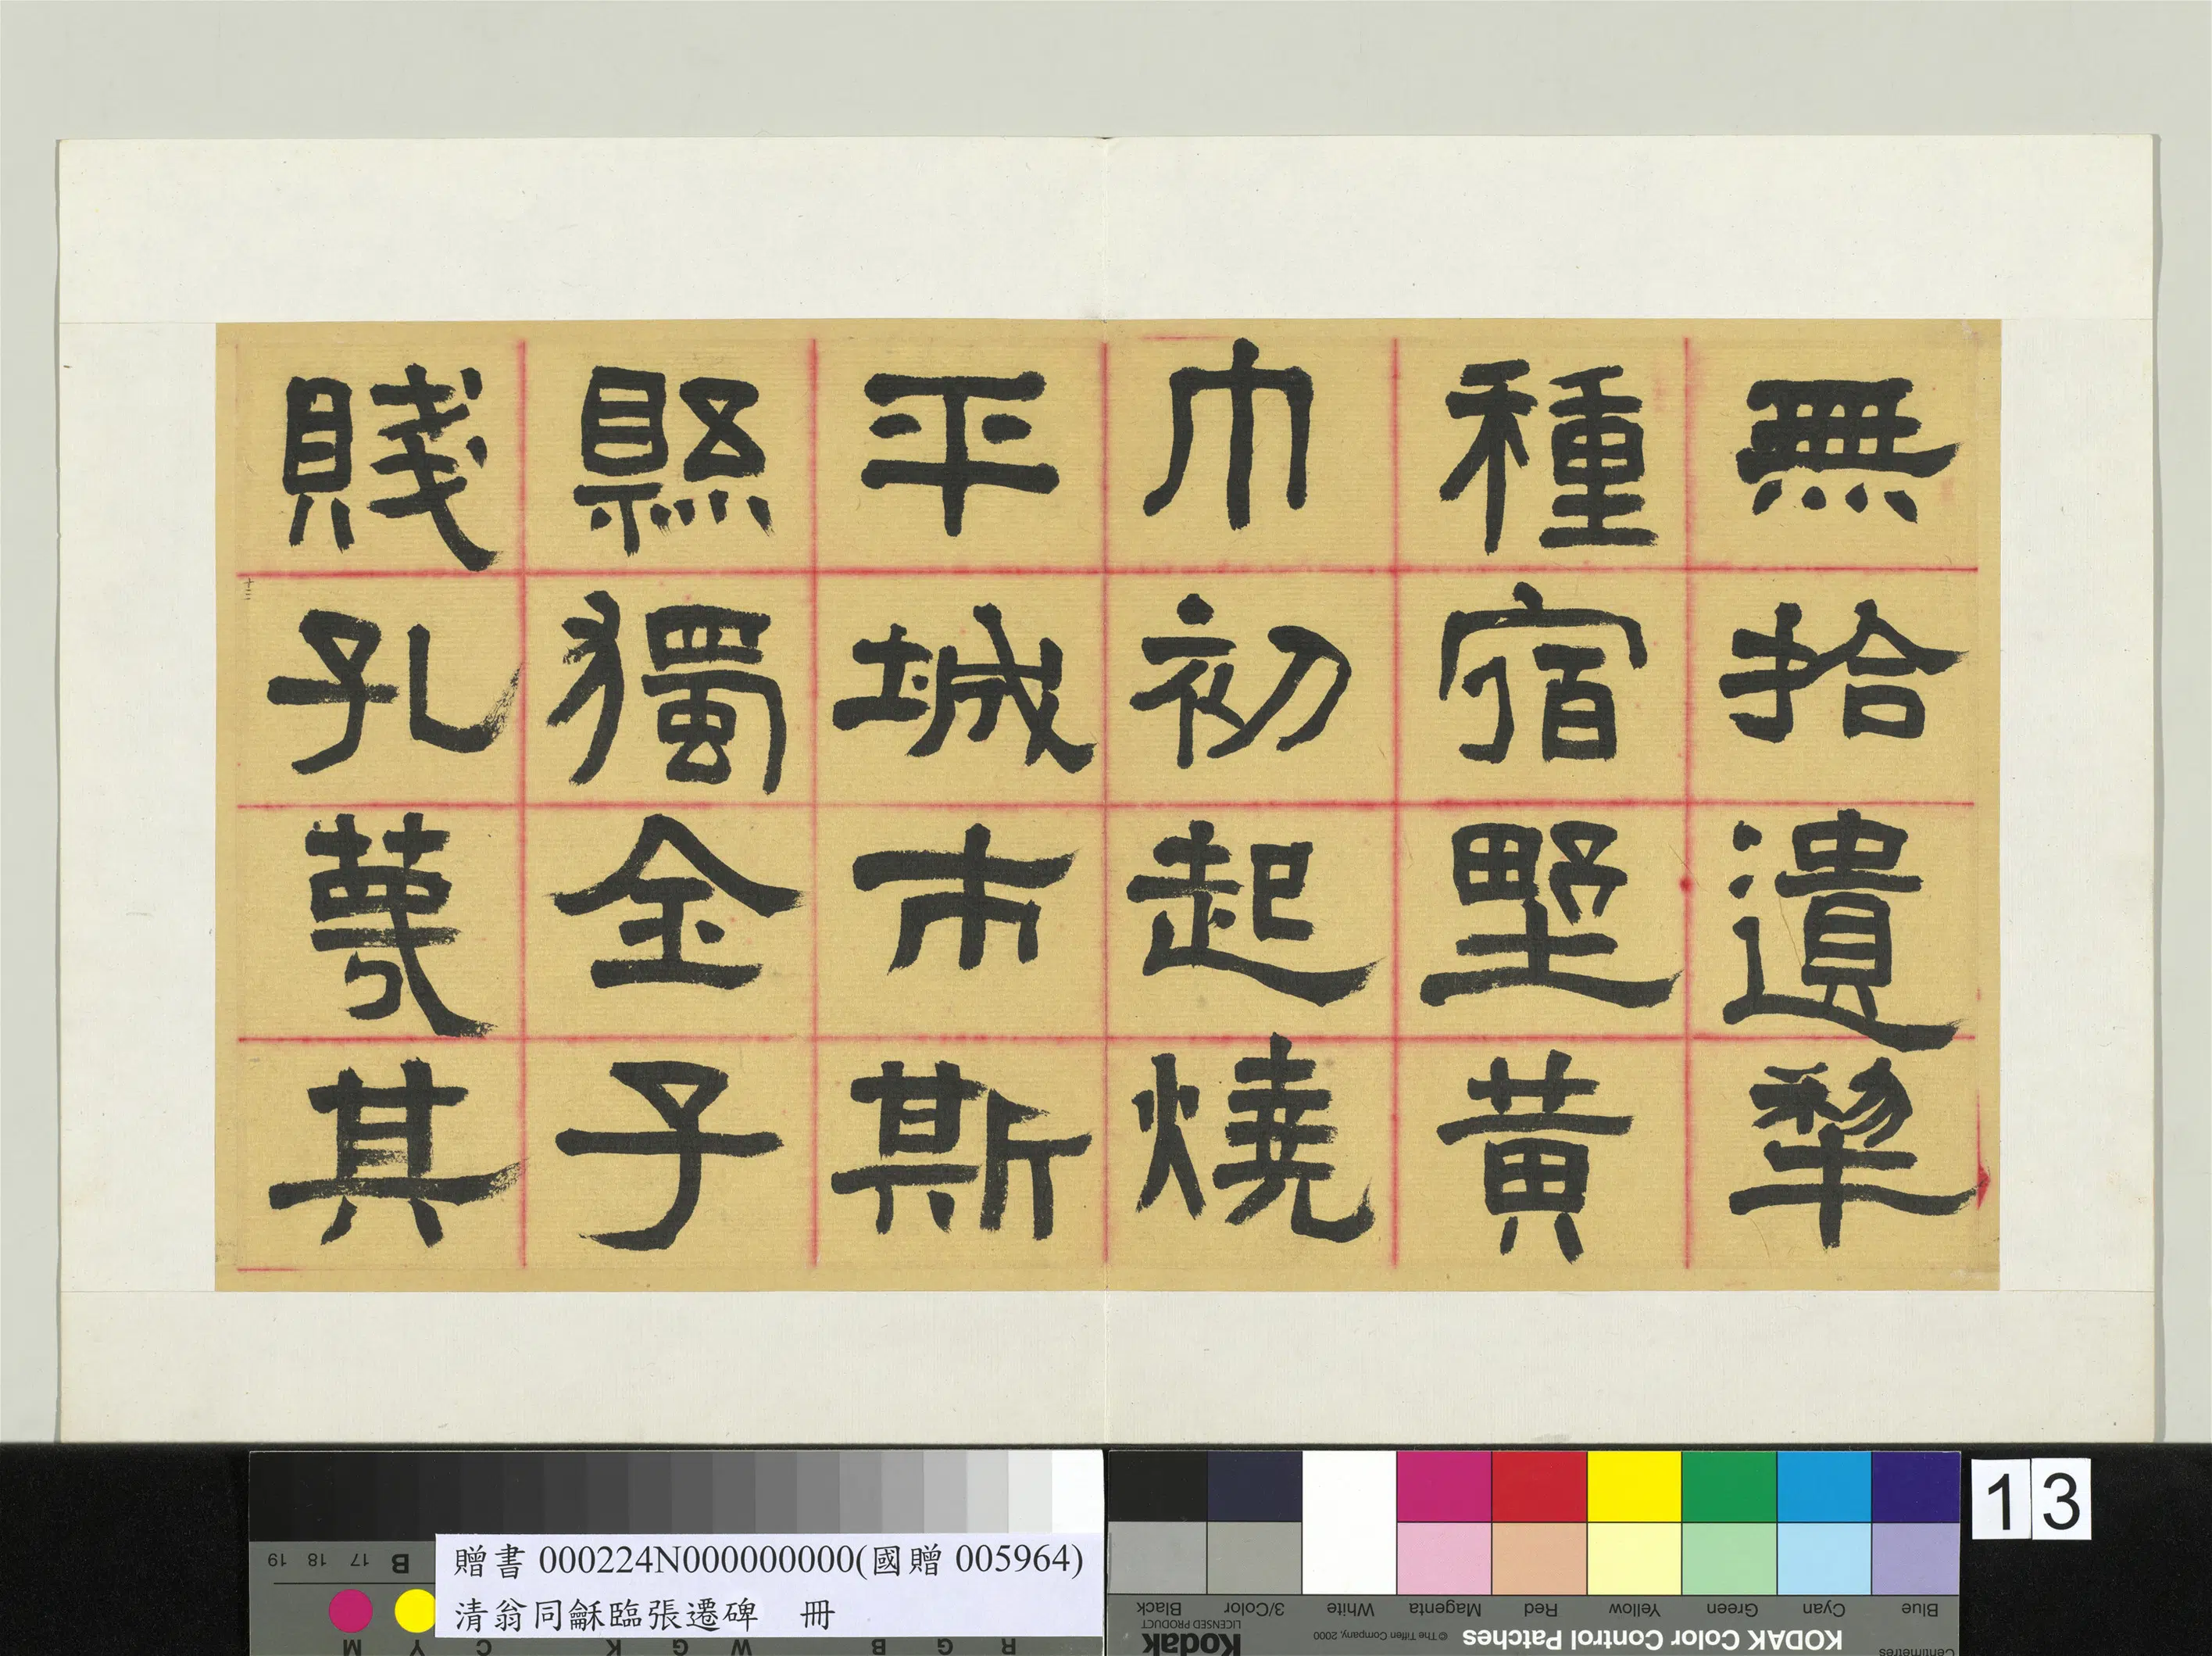 無拾遺犂
種宿野黃
巾初起燒
平城市斯
縣獨金子
賤孔蔑其
十三
13
贈書 000224N000000000(國贈 005964)
清翁同龢臨張遷碑 冊
19 18 17 B
M Y C K W G B G R
Black 3/Color White Magenta Red Yellow Green Cyan Blue
Kodak
LICENSED PRODUCT
© The Tiffen Company, 2000
KODAK Color Control Patches
Centimetres